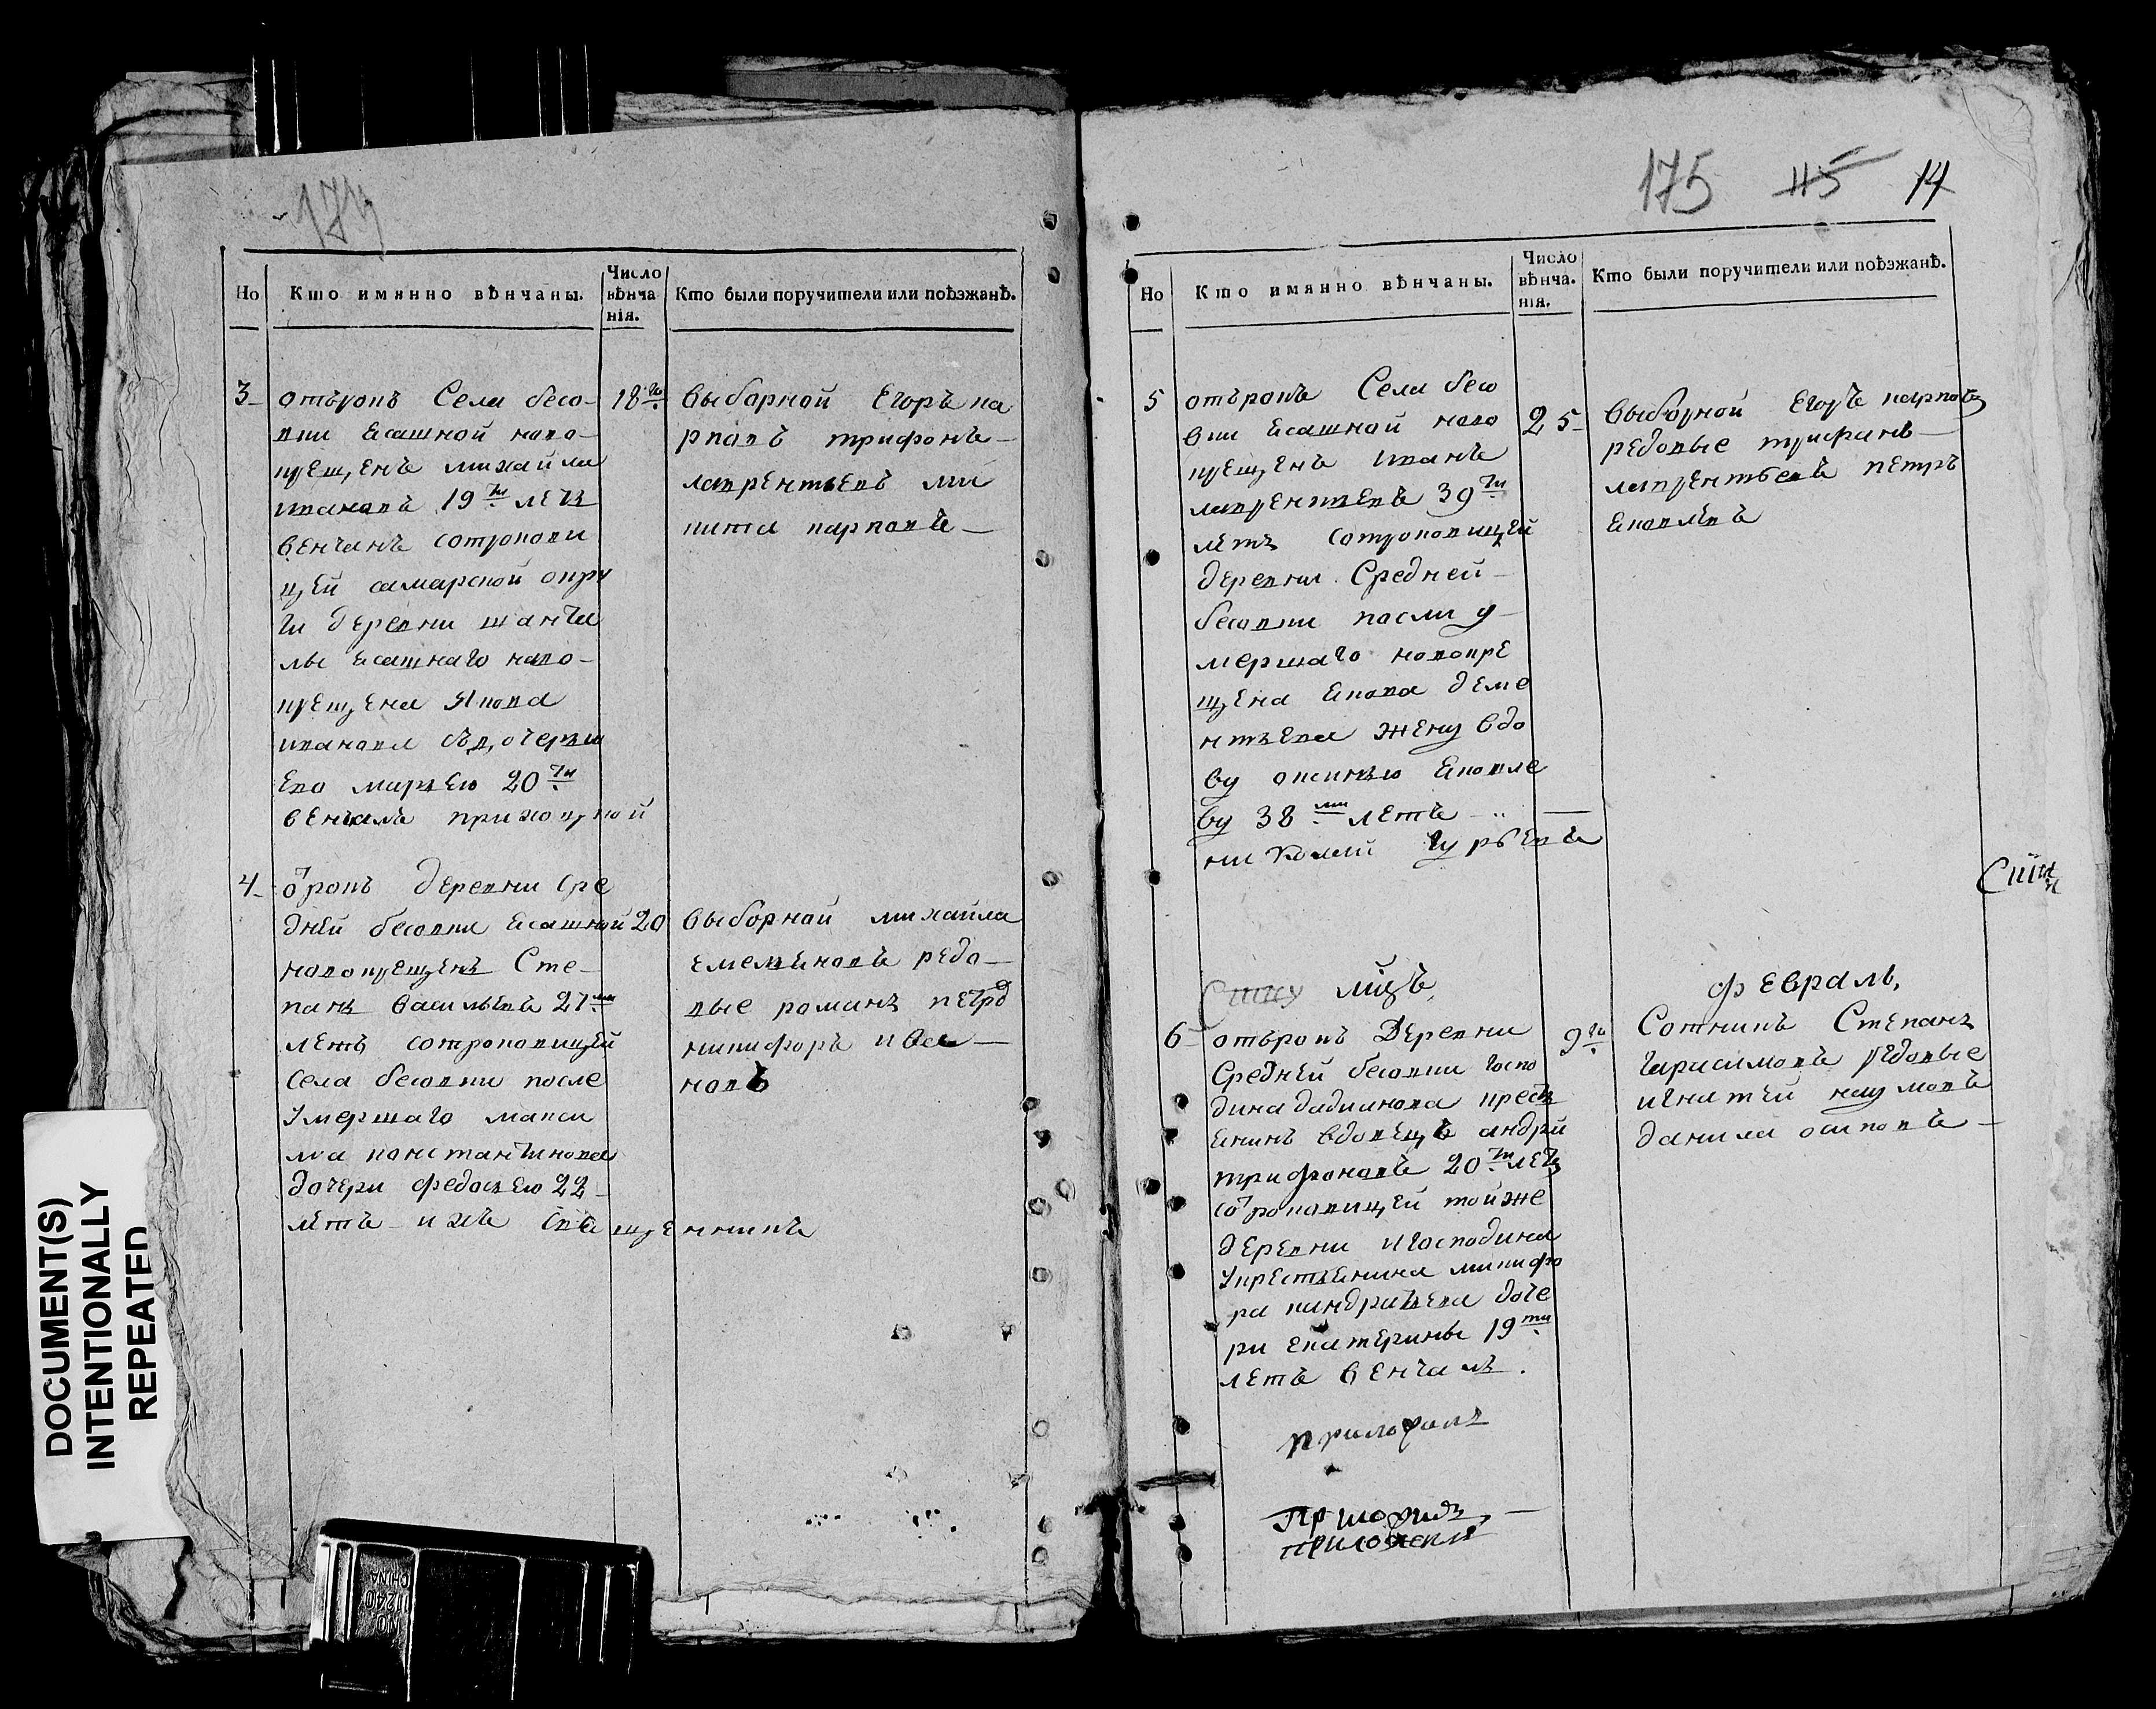 174
Но
Кто имянно вѣнчаны.
Число вѣнча нія.
Кто были поручители или поѣзжанѣ.
3
отърокъ Села бесо-
вки ясашной ново-
крещенъ михайла
ивановъ 19 ти летъ
венчанъ сотрокови
цей самарской окру
ги деревни шантa
лы ясашнаго ново-
крещена якова
иванова
ево марьею 20 ти
венчалъ
18 го
выборной Егоръ ка
рповъ трифонъ
лаврентьевъ ми
кита карповъ
4
отрокъ деревни сре
дней бесовки ясашной
новокрещенъ Сте-
панъ васильевъ 27 ми
летъ сотроковицей
Села бесовки после
умершаго макси
ма константинова
дочери федосьею 22
летъ ихъ священникъ
20
выборной михайла
емельяновъ редо-
вые романъ петро
никифоръ ива
новъ
175 115 14
Но
Кто имянно вѣнчаны.
Число вѣнча. нія.
Кто были поручители или поѣзжанѣ.
5
отърокъ Села бесо
вки ясашной ново
крещенъ иванъ
лаврентьевъ 39 ти
летъ сотроковицей
деревни Средней
бесовки после у
мершаго новокре
щена якова деме
нтьева жену вдо
ву аксинью яковле
ву 38 ми летъ
николай гурьевъ
25
выборной Егоръ карповъ
редовые трифанъ
лаврентьевъ петръ
яковлевъ
февраль,
6
отърокъ Деревни
Средней бесовки госпо
дина дадианова крестъ
янинъ вдовецъ андрей
трифоновъ 20 ти летъ
сотроковицей тойже
деревни игосподина
укрестьянина никифо
ра кандратьева доче
ри екатерины 19 ти
летъ венчалъ.
9 го
Сотникъ Степанъ
гарасимовъ редовые
игнатей наумовъ
данила осиповъ
DOCUMENT(S)
INTENTIONALLY
REPEATED
NO
11240
CHINA